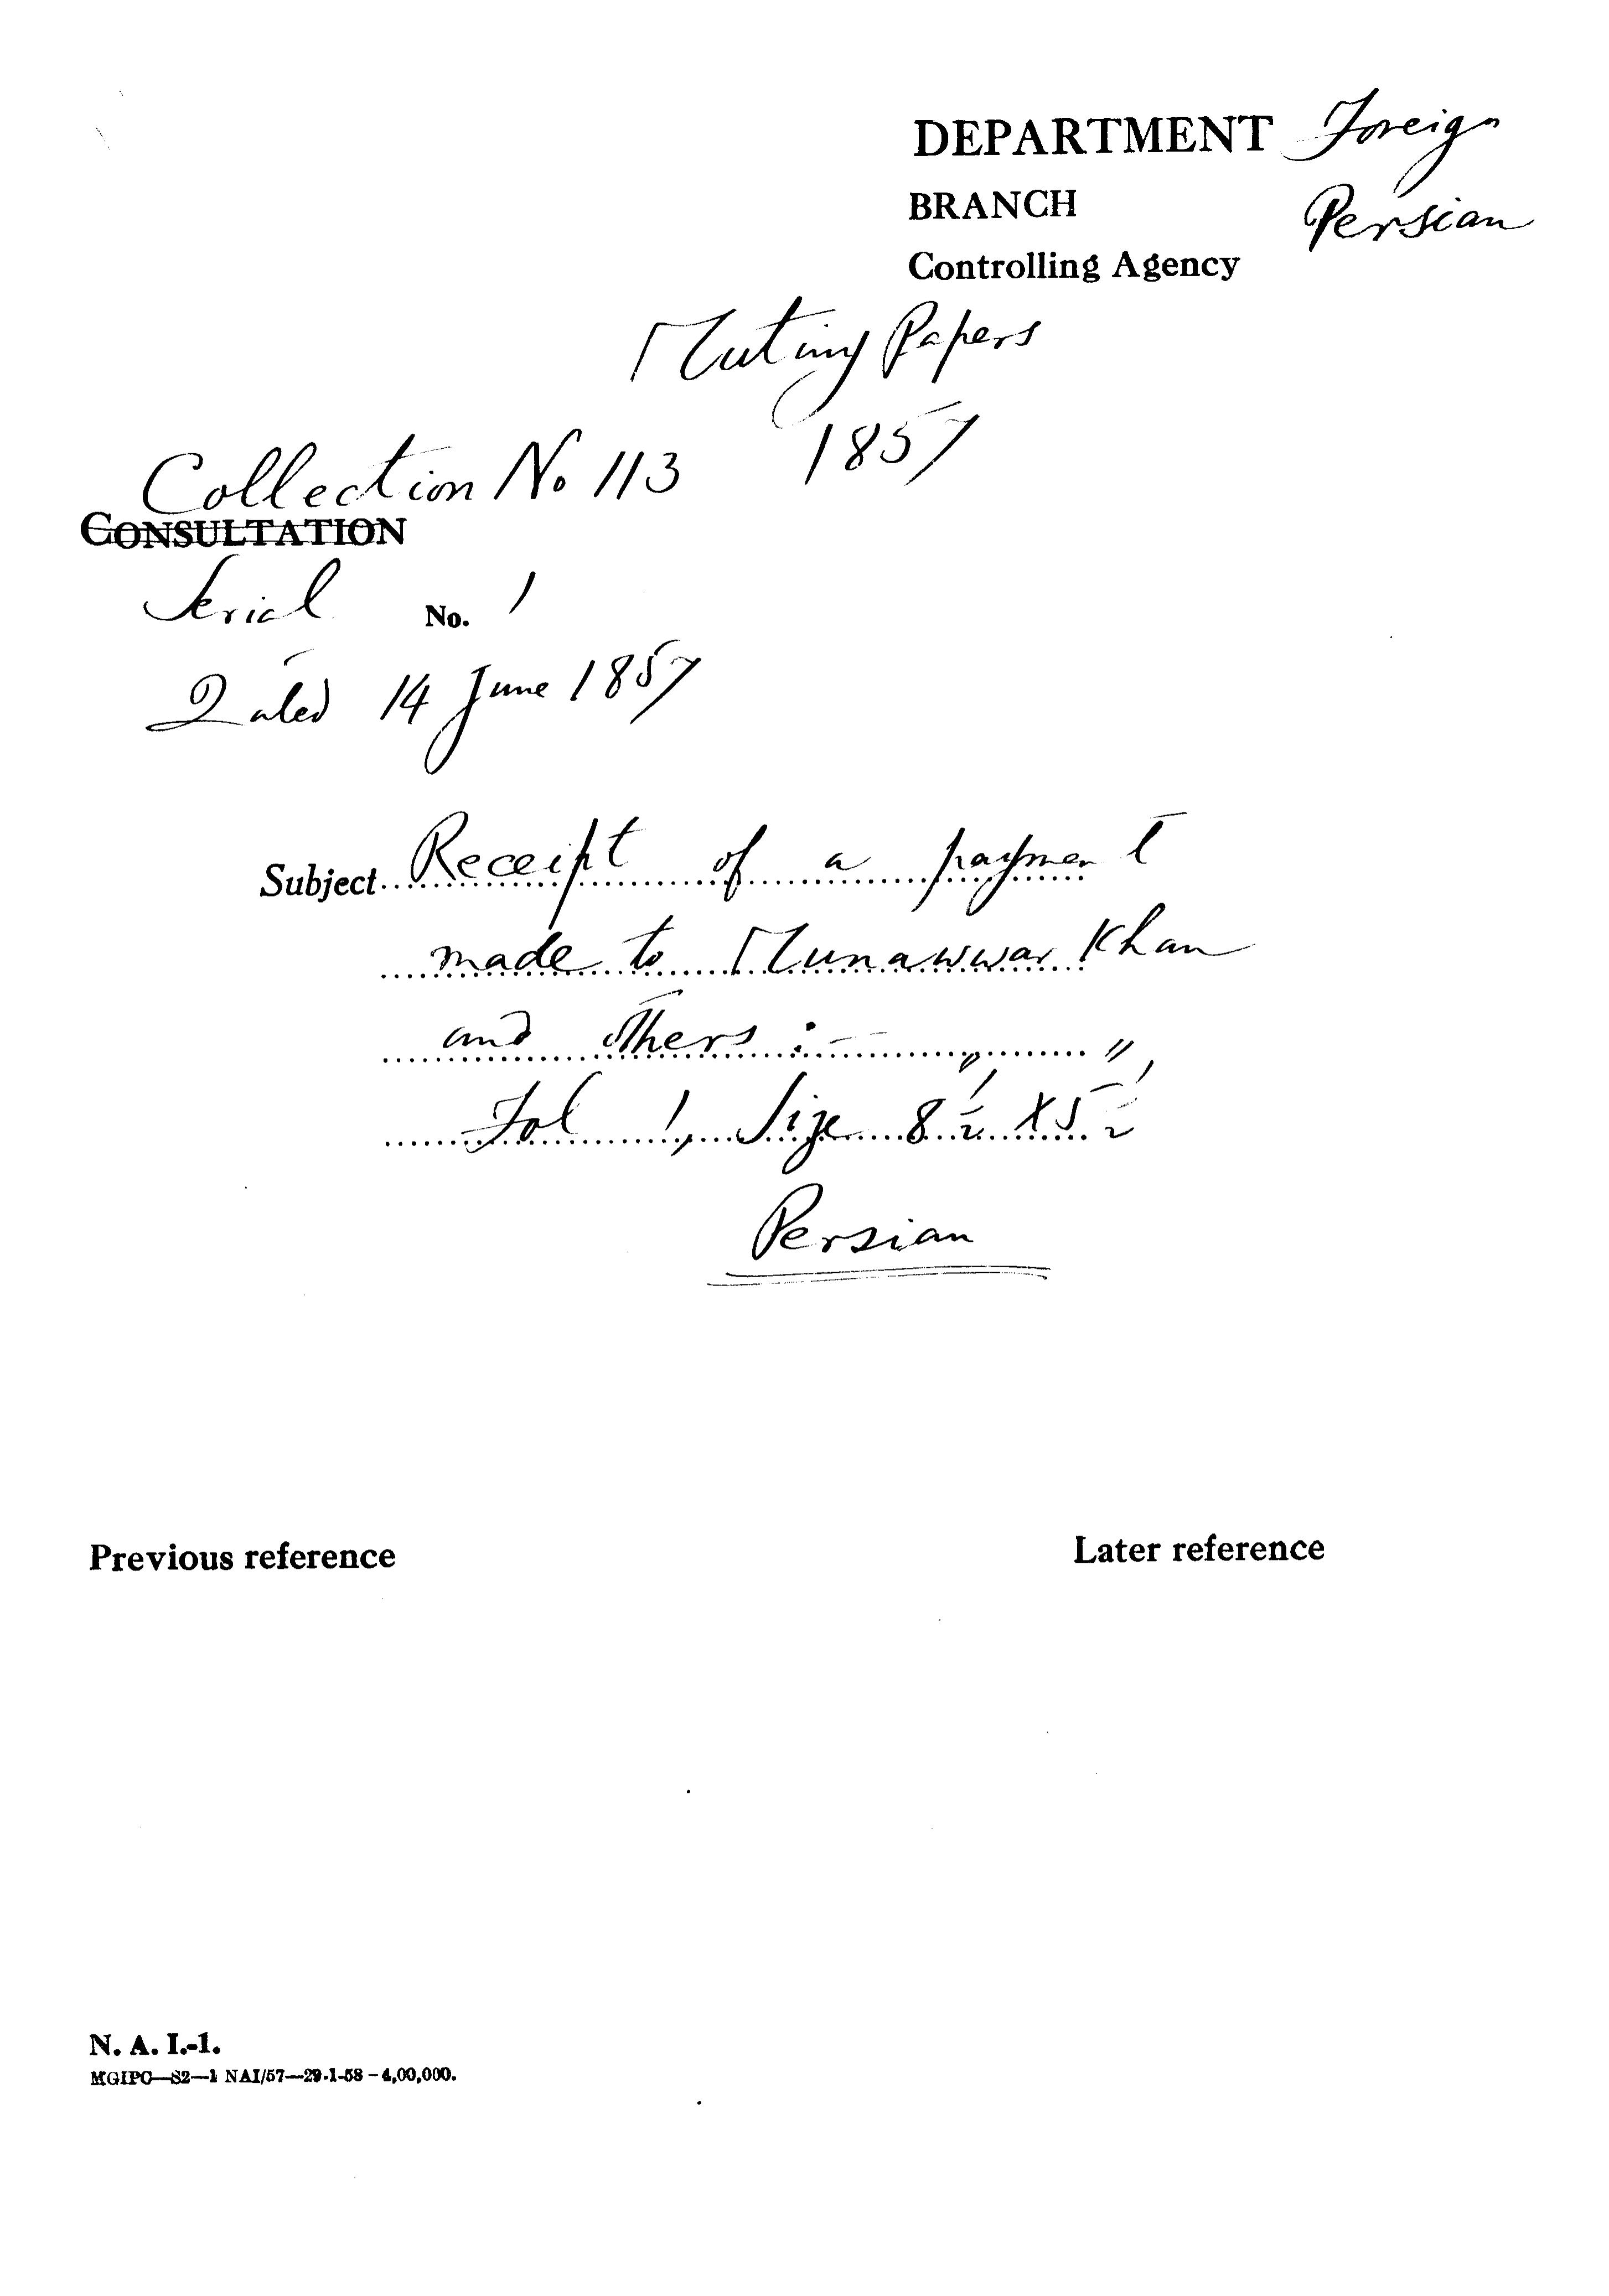 DEPARTMENT Foreign
BRANCH Persian
Controlling Agency
Mutiny Papers
1857
Collection No 113
CONSULTATION
Serial No. 1
Dated 14 June 1857
Subject Receipt of a payment
made to Munawwar Khan
and others :— " "
Fol 1, Size 8½ X 5½
Persian
Previous reference
Later reference
N. A. I.-1.
MGIPC—S2—1 NAI/57—29-1-58—4,00,000.